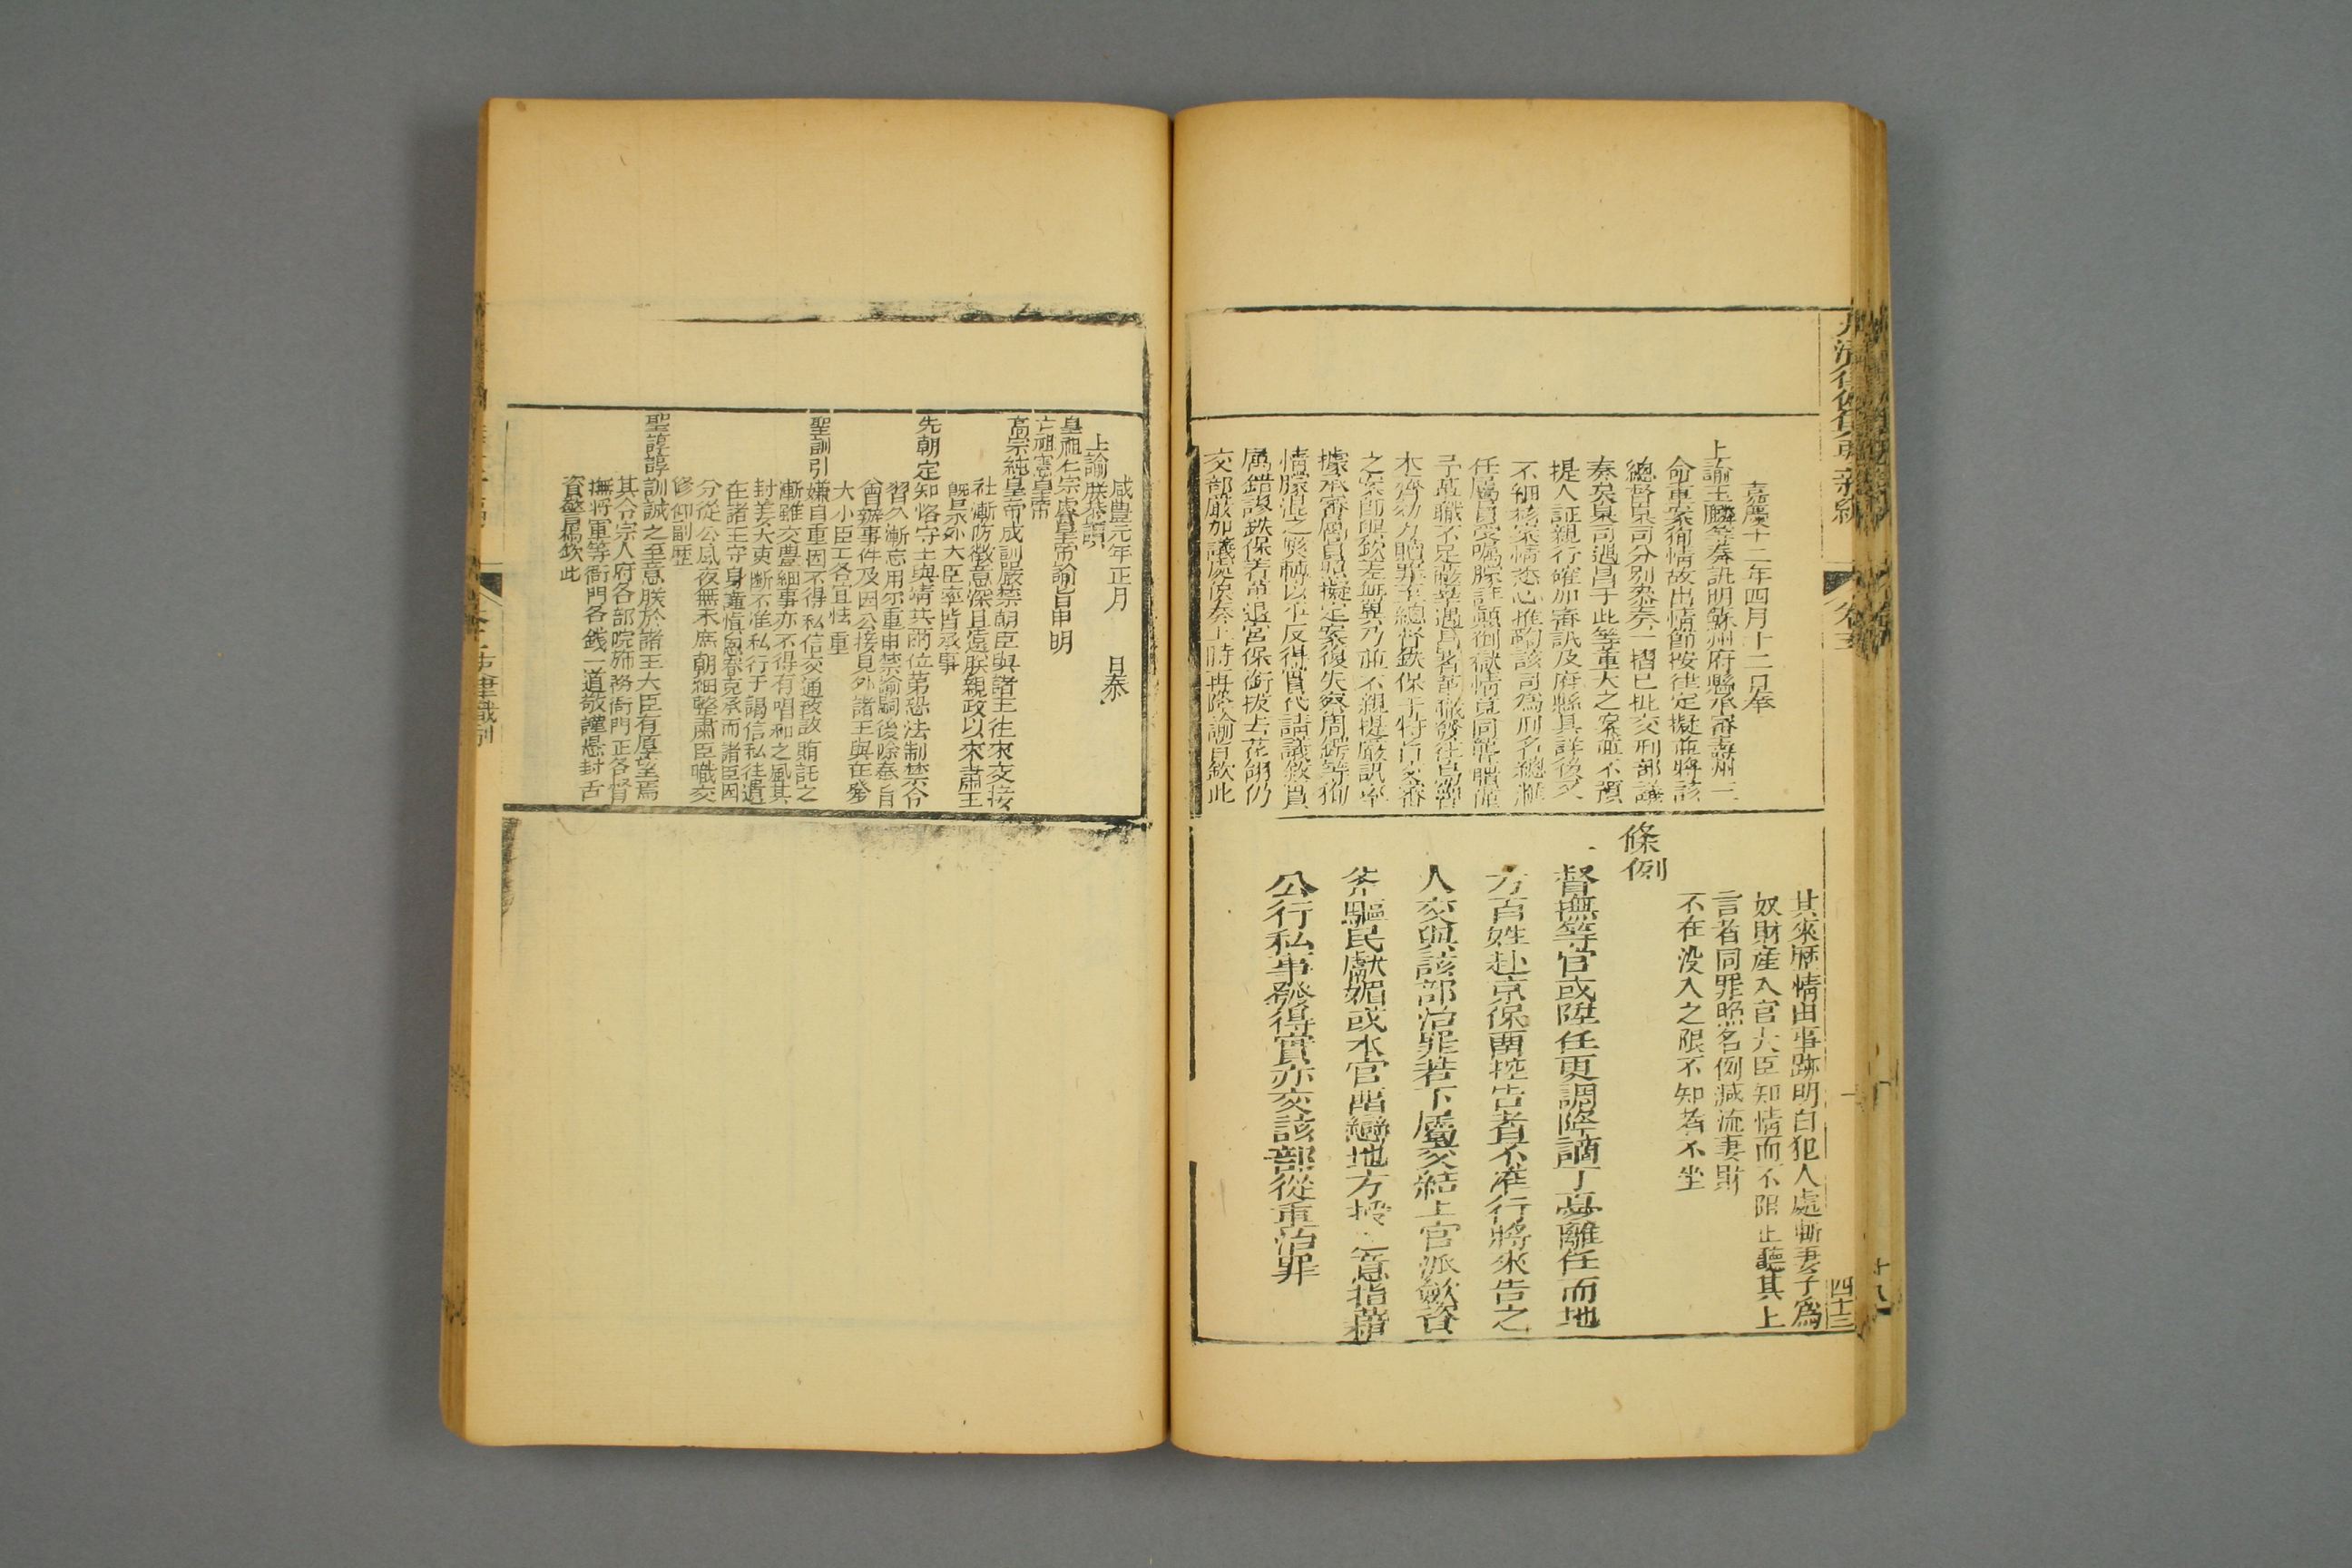 嘉慶十二年四月十二日奉
上諭玉麟等奏訊明蘇州府縣承審壽州一
命重案徇情故出情節按律定擬並將該
總督臬司分別叅奏一摺已批交刑部議
奏矣臬司遇昌于此等重大之案並不預
提人証親行確加審訊及府縣具詳後又
不細核案情悉心推鞫該司為刑名總匯
任屬員受囑朦詳顛倒獄情竟同聾瞶僅
予革職不足蔽辜遇昌著革職發往烏魯
木齊効力贖罪至總督鉄保于特旨交審
之案
據承審屬員照擬定案復失察周鍔等徇
情朦混之
屬錯謬鉄保著革退宮保銜拔去花翎仍
交部嚴加議處俟奏上時再降諭旨欽此
其來歷情由事跡明白犯人處斬妻子為
奴財產入官大臣知情而不阻止聽其上
言者同罪照名例減流妻財
不在没入之限不知者不坐
條例
督撫等官或陞任更調降謫丁憂離任而地
方百姓赴京保留控告者具不准行將來告之
人交與該部治罪若下屬交結上官派斂資
斧驅民獻媚或本官留戀地方授意指藉
公行私事發得實亦交該部從重治罪
卷三
四十三
咸豊元年正月 日奉
上諭朕恭讀
皇祖仁宗睿皇帝諭旨申明
亡祖憲皇帝
高宗純皇帝成訓嚴禁朝臣與諸王往來交接
社漸防微意深且遠朕親政以來肅王
既景外大臣率皆承事
先朝定知恪守士與靖共兩位第恐法制禁令
習久漸忘用尔重申禁諭嗣後除奉旨
會辦事件及因公接見外諸王與在廷
大小臣工各宜怯重
聖訓引嫌自重因不得私信交通被設賄託之
漸雖交豊細事亦不得有唱和之風其
封姜大吏斷不准私行于謁信私往遺
在諸王守身謹慎恩眷克承而諸臣因
分從公夙夜無未庶朝細整肅臣職交
修仰副歴
聖諄諄訓誡之至意朕於諸王大臣有厚望焉
其令宗人府各部院衙門正各督
撫將軍等衙門各錢一道敬謹懸封舌
資警惕欽此